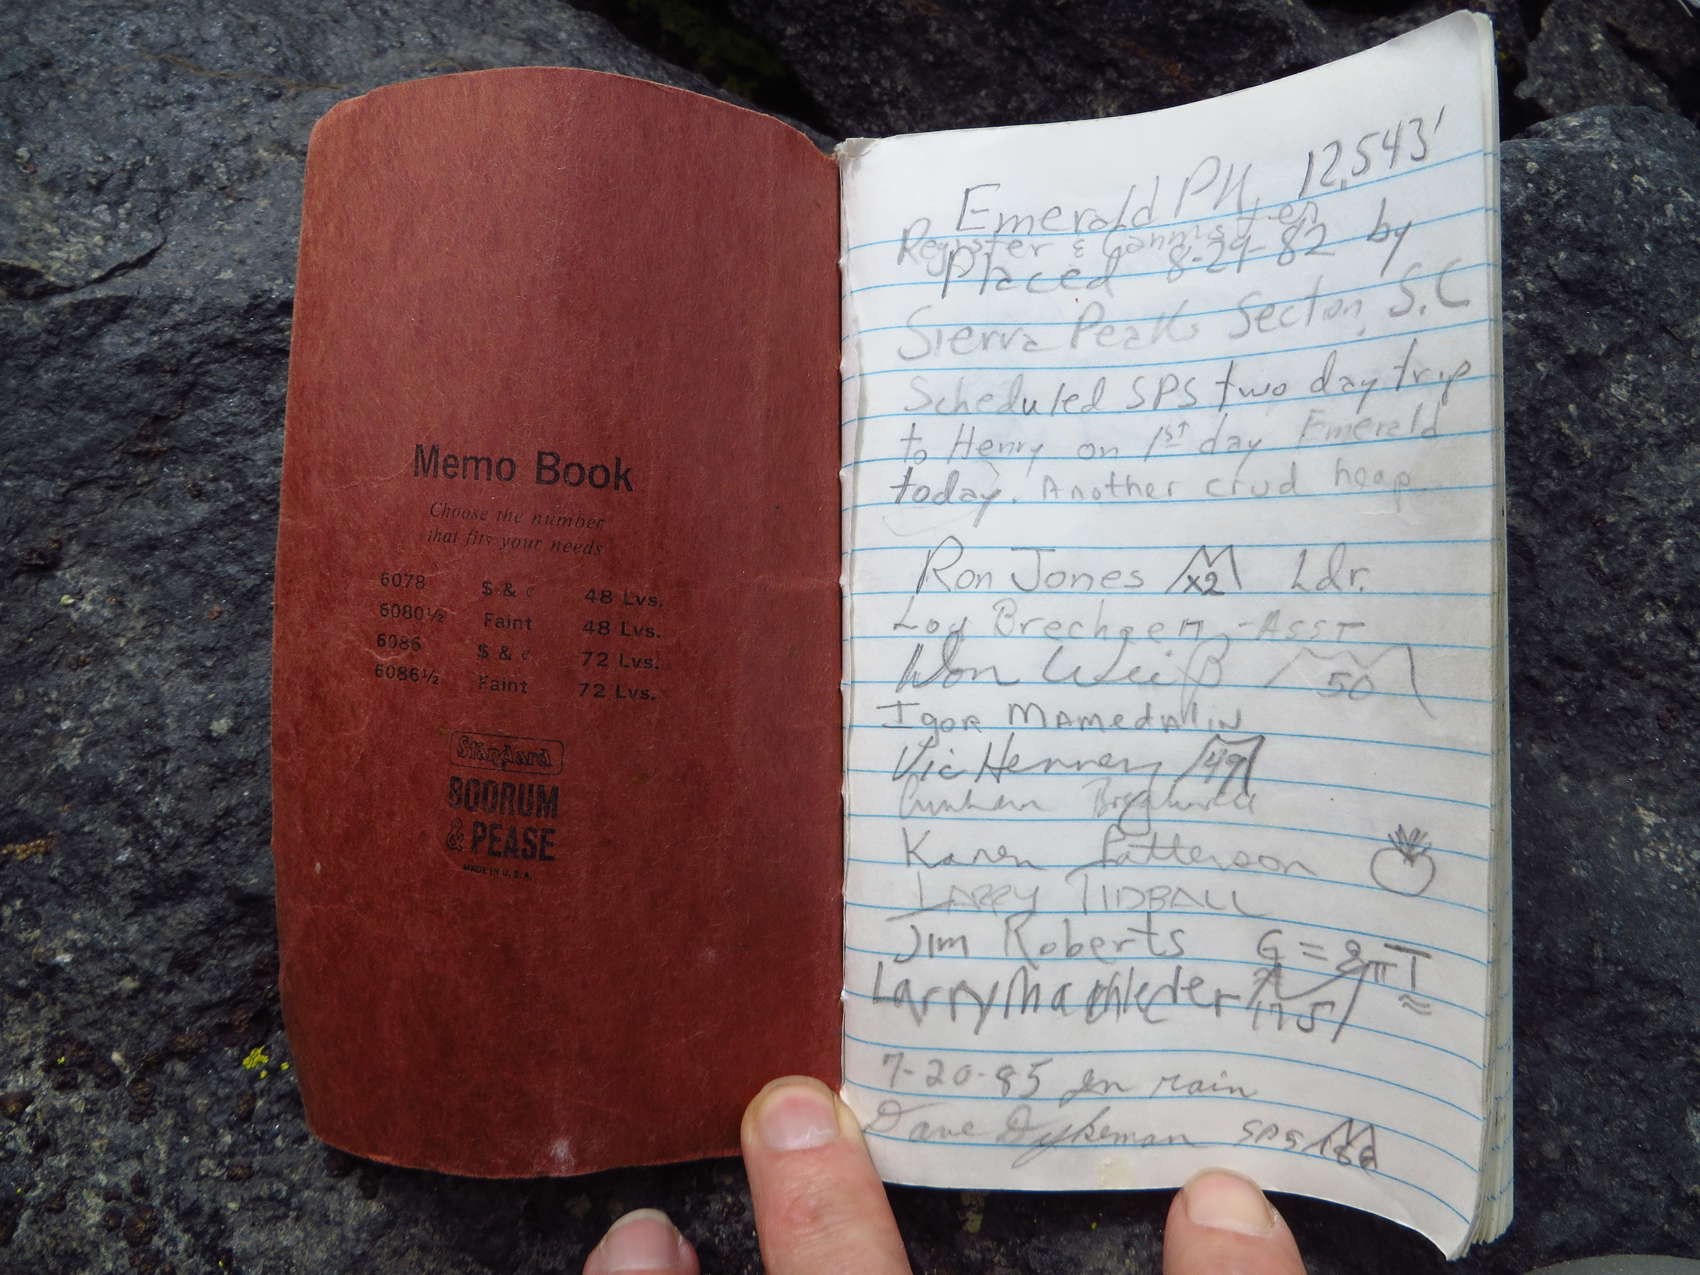 Memo Book
Choose the number
that fits your needs
6078 $ & ¢ 48 Lvs.
6080½ Faint 48 Lvs.
6086 $ & ¢ 72 Lvs.
6086½ Faint 72 Lvs.
Standard
BOORUM
& PEASE
MADE IN U.S.A.
Emerald PK 12,543'
Register &
Placed 8-29-82 by
Sierra Peaks Section, S.C
Scheduled SPS two day trip
to Henry on 1st day Emerald
today. Another crud heap
Ron Jones x2 Ldr.
Brechgen -ASST
50
Igor Mamedalin
Vic Henney 49
Karen Patterson
LARRY TIDBALL
Jim Roberts G = 8πT
Larry Machleder 175
7-20-85 In rain
Dave Dykeman SPS 186